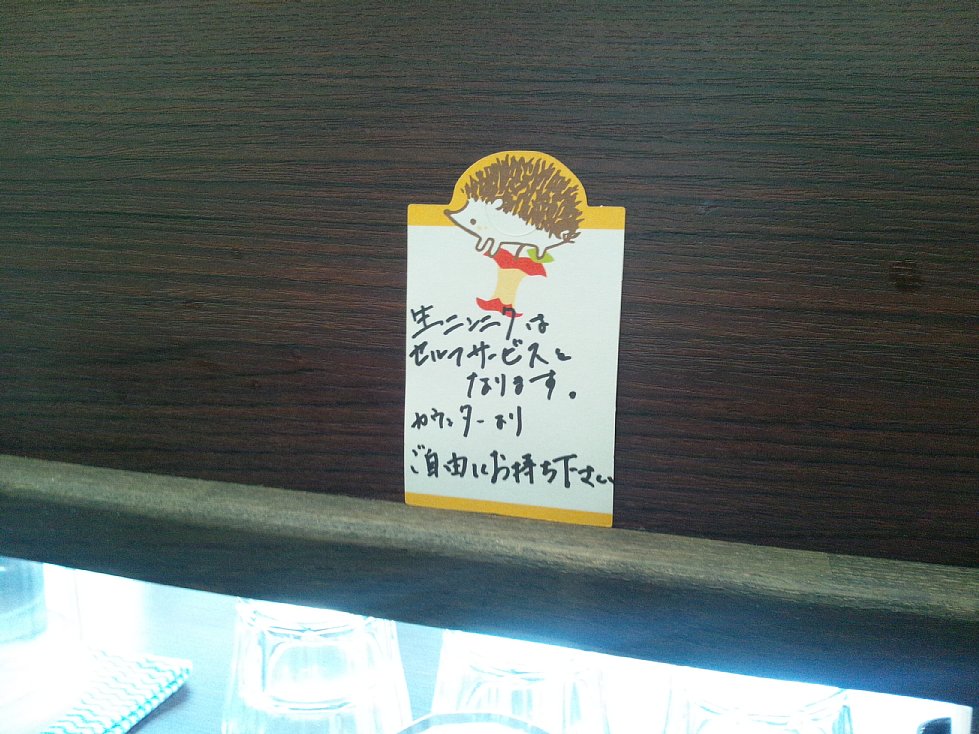 生ニンニクは
セルフサービスと
なります。
カウンターより
ご自由にお持ち下さい